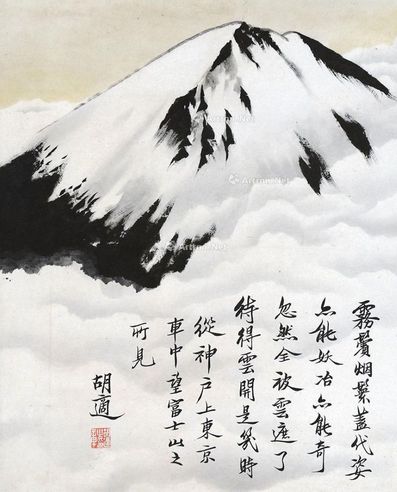 霧鬢烟鬟蓋代姿
亦能妖冶亦能奇
忽然全被雲遮了
待得雲開是幾時
從神户上東京
車中望富士山之
所見
胡適
Artron.Net
Artron.Net